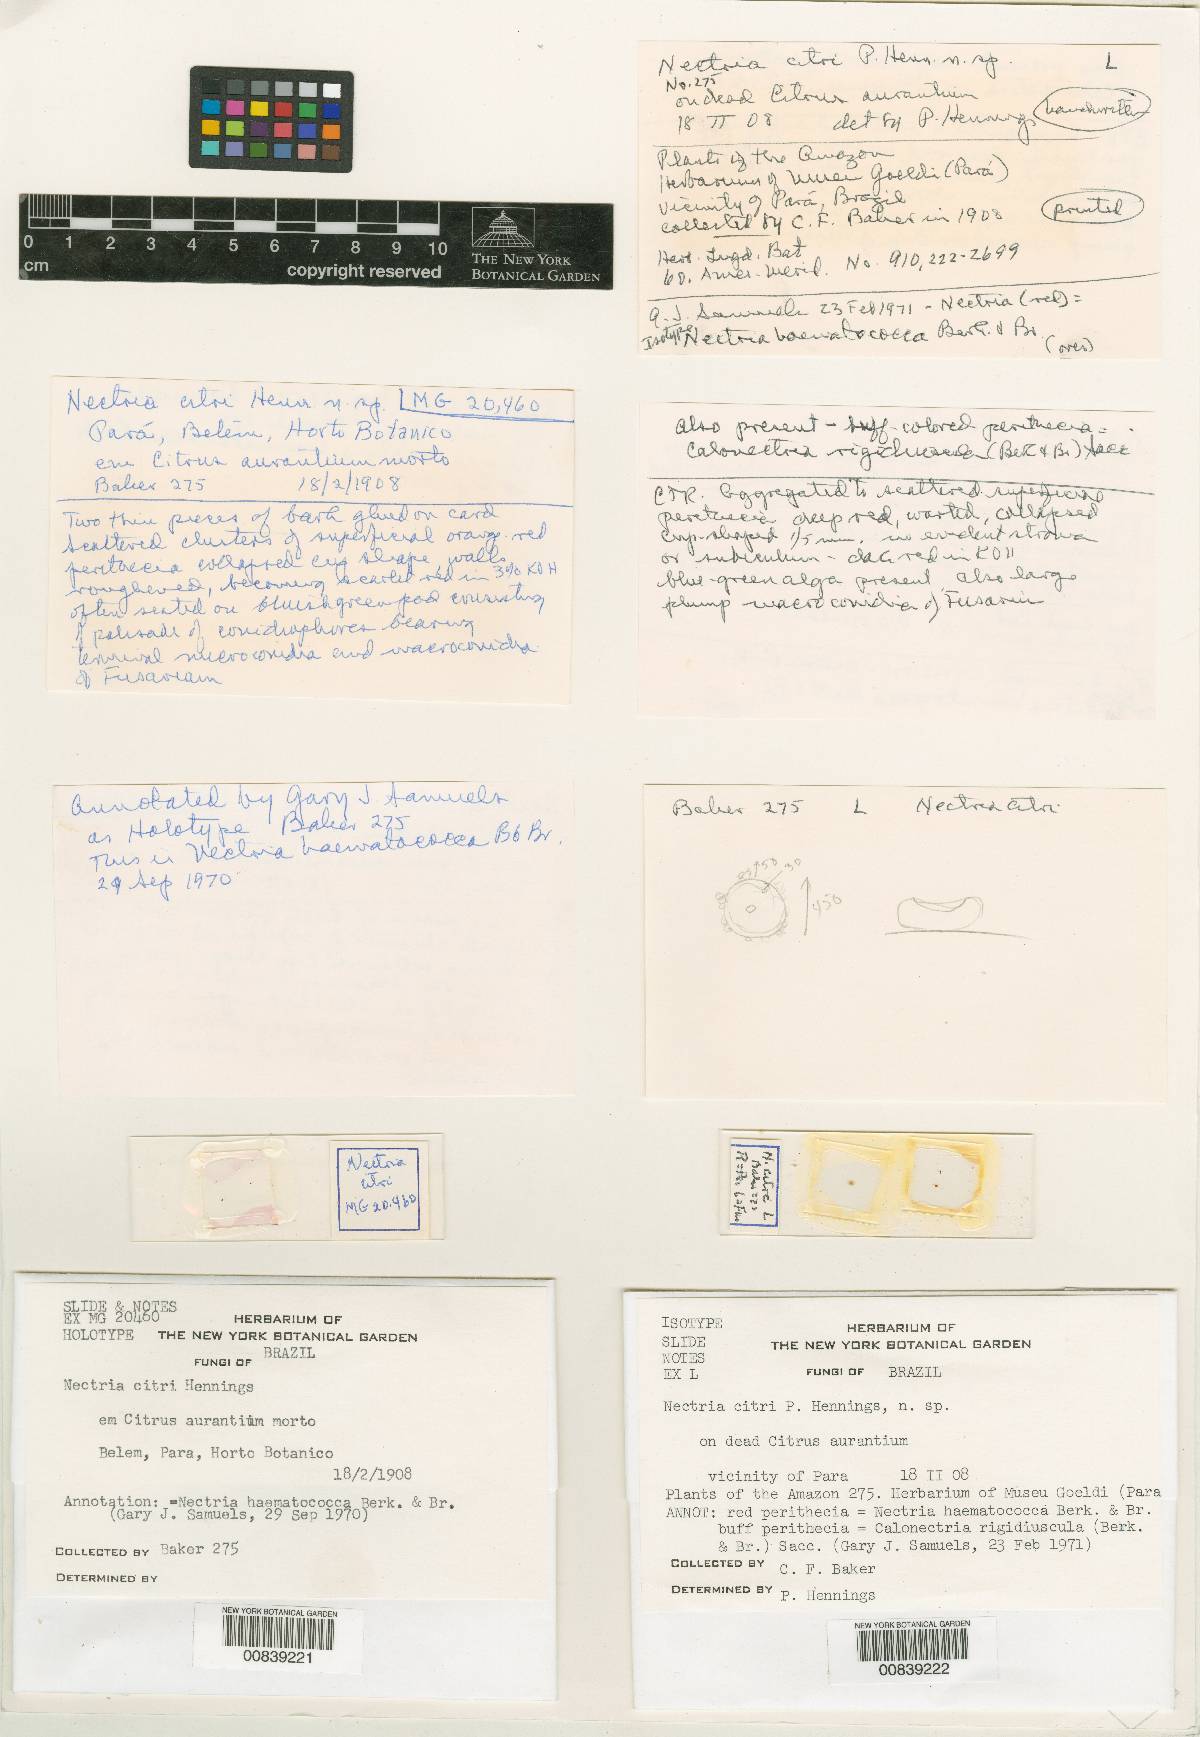 0 1 2 3 4 5 6 7 8 9 10
cm
copyright reserved
THE NEW YORK
BOTANICAL GARDEN
Nectria citri P. Henn. n. sp. L
No. 275
on dead Citrus aurantium
18 II 08 det by P. Hennings
handwritten
Plants of the Amazon
Herbarium of Museu Goeldi (Pará)
Vicinity of Pará, Brazil
collected by C. F. Baker in 1908
printed
Herb. Lugd. Bat
No. 910,222-2699
G. J. Samuels 23 Feb 1971 - Nectria (red) =
Isotype Nectria haematococca Berk. & Br.
(over)
Nectria citri Henn n. sp. MG 20,460
Pará, Belém, Horto Botanico
em Citrus aurantium morto
Baker 275 18/2/1908
Two thin pieces of bark glued on card
scattered clusters of superficial orange-red
perithecia collapsed cup shape, walls
roughened, becoming scarlet red in 3% KOH
often seated on bluish green pad consisting
of palisade of conidiophores bearing
terminal microconidia and macroconidia
of Fusarium
also present - buff-colored perithecia =
Calonectria rigidiuscula (Berk & Br) Sacc
CTR. Aggregated to scattered superficial
perithecia deep red, warted, collapsed
cup-shaped no evident stroma
or subiculum - dark red in KOH
blue-green alga present also large
plump macroconidia of Fusarium
Annotated by Gary J. Samuels
as Holotype Baker 275
This is Nectria haematococca B & Br.
29 Sep 1970
Baker 275 L Nectria citri
50 30
450
Nectria
citri
MG 20.460
N. citri L
Baker 275
HERBARIUM OF
THE NEW YORK BOTANICAL GARDEN
SLIDE & NOTES
EX MG 20460
HOLOTYPE
FUNGI OF BRAZIL
Nectria citri Hennings
em Citrus aurantium morto
Belem, Para, Horto Botanico
18/2/1908
Annotation: =Nectria haematococca Berk. & Br.
(Gary J. Samuels, 29 Sep 1970)
COLLECTED BY Baker 275
DETERMINED BY
NEW YORK BOTANICAL GARDEN
00839221
ISOTYPE
SLIDE
NOTES
EX L
HERBARIUM OF
THE NEW YORK BOTANICAL GARDEN
FUNGI OF BRAZIL
Nectria citri P. Hennings, n. sp.
on dead Citrus aurantium
vicinity of Para 18 II 08
Plants of the Amazon 275. Herbarium of Museu Goeldi (Para
ANNOT: red perithecia = Nectria haematococca Berk. & Br.
buff perithecia = Calonectria rigidiuscula (Berk.
& Br.) Sacc. (Gary J. Samuels, 23 Feb 1971)
COLLECTED BY C. F. Baker
DETERMINED BY P. Hennings
NEW YORK BOTANICAL GARDEN
00839222